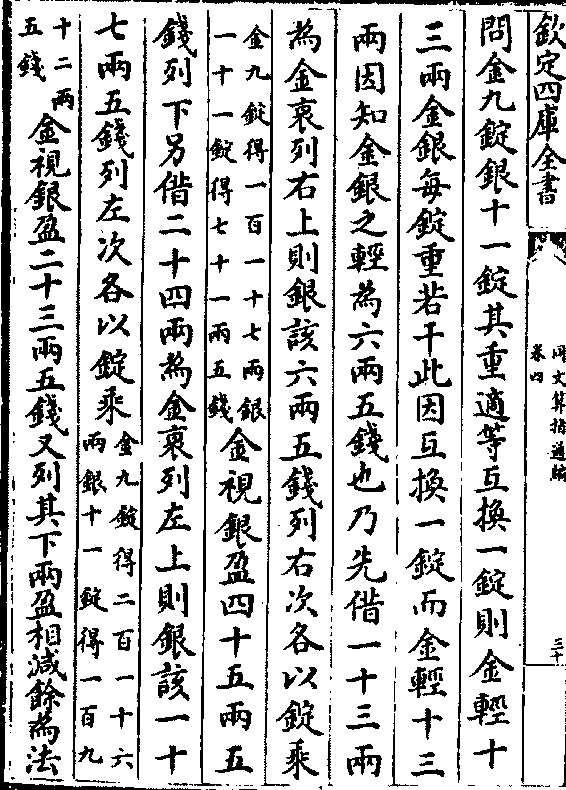 欽定四庫全書
同文算指通編
卷四
三十
問金九錠銀十一錠其重適等互換一錠則金輕十
三兩金銀每錠重若干此因互換一錠而金輕十三
兩因知金銀之輕為六兩五錢也乃先借一十三兩
為金衰列右上則銀該六兩五錢列右次各以錠乘
金九錠得一百一十七兩銀
一十一錠得七十一兩五錢
金視銀盈四十五兩五
錢列下另借二十四兩為金衰列左上則銀該一十
七兩五錢列左次各以錠乘
金九錠得二百一十六
兩銀十一錠得一百九
十二兩
五錢
金視銀盈二十三兩五錢又列其下兩盈相減餘為法